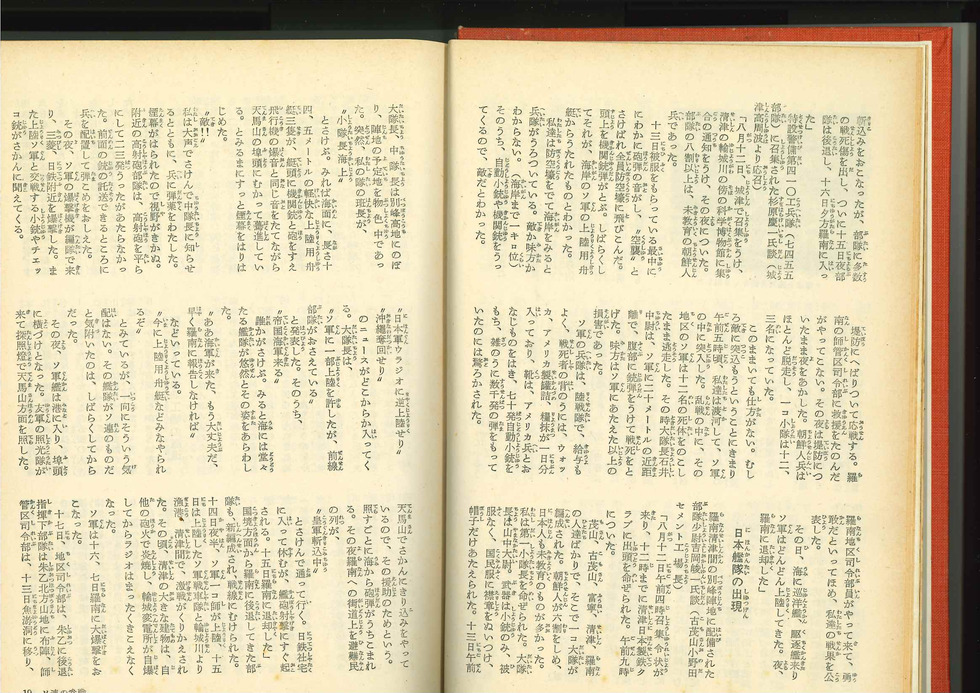 斬込みをおこなったが、部隊に多数
の戦死傷を出し、ついに十五日夜部
隊は後退し、十六日夕羅南に入っ
た」
特設警備第四一〇工兵隊（七四五五
部隊）に召集された杉原慶一氏談（城
津高周波より応召）
「八月十二日、城津で召集をうけ、
清津の輸城川の傍の科学博物館に集
合の通知をうけ、その夜についた。
部隊の八割以上は、未教育の朝鮮人
兵であった。
十三日被服をもらっている最中に
にわかに砲弾の音がし、〝空襲〟と
さけばれ、全員防空壕に飛びこんだ。
頭上を機関銃弾がとぶ。しばらくし
てそれが、海岸のソ軍の上陸用舟
艇からうたれたものとわかった。
私達は防空壕をでて海岸をみると
兵隊がうろついている。敵か味方か
わからない。（海岸まで一キロ位）
そのうち、自動小銃や機関銃をうっ
てくるので、敵だとわかった。
堤防にへばりついて応戦する。羅
南の師管区司令部に救援をたのんだ
がやってこない。その夜は堤防につ
いたまま夜をあかした。朝鮮人兵は
ほとんど脱走し、一コ小隊は十二、
三名になっていた。
このままいても仕方がない。むし
ろ敵に突込もうということにきまり
午前五時頃、私達は渡河して、ソ軍
の中に突入した。乱戦の中に、その
地区のソ軍は十二名の死体をのこし
たまま逃走した。その時大隊長石井
中尉は、ソ軍に二十メートルの近距
離で、腹部に銃弾をうけて戦死をと
げた。味方はソ軍にあたえた以上の
損害であった。
ソ軍の兵隊は、陸戦隊で、給与も
よく、戦死者の背のうには、ウォッ
カ、アメリカ製罐詰、糧抹が一日分
入っており、靴は、アメリカ兵とお
なじものをはき、七十発自動小銃を
もち、雑のうに数千発の弾をもって
いたのには驚かされた。
羅南地区司令部員がやって来て、勇
敢だといってほめ、私達の戦果を公
表した。
その日、海に巡洋艦、駆逐艦来り
ソ軍はどんどん上陸してきた。夜、
羅南に退却した」
日本艦隊の出現
羅南清津間の別峰陣地に配備された
部隊少尉吉岡峻一氏談（古茂山小野田
セメント工場長）
「八月十一日午前四時召集令状が
来り、十二時までに清津日本製鉄ク
ラブに出頭を命ぜられた。午前九時
についた。
茂山、古茂山、富寧、清津、羅南
の人達ばかりで、そこで一コ大隊が
編成された。朝鮮人が六割をしめ、
日本人も未教育のものが多かった。
私は第一小隊長を命ぜられた。大隊
長は山中大尉。武器は小銃のみ、被
服なく、国民服に襟章をぬいつけ、
帽子だけあたえられた。十三日午前
大隊長、中、小隊長は別峰高地にのぼ
り、陣地の予定地を物色中であっ
た。突然、私の隊の班長が、
〝小隊長海上〟
とさけぶ。みれば海面に、長さ十
四、五メートルの軽快な上陸用舟
艇三隻が、艇頭に機関銃と砲をすえ
飛行機の爆音と同じ音をたてながら
天馬山の埠頭にむかって驀進してい
る。とみるまにすっと煙幕をはりは
じめた。
〝敵!!〟
私は大声でさけんで中隊長に知らせ
るとともに、兵に弾薬をわたした。
煙幕がはられたので視野がきかぬ。
附近の高射砲部隊は、高射砲を平ら
にして二三発うったがあたらなかっ
た。前面の銃の託送できるところに
兵を配置して弾こめをおしえた。
その夜、ソ軍の爆撃機が編隊で来
り、三菱、日鉄附近を爆撃した。ま
た上陸ソ軍と交戦する小銃やチェッ
コ銃がさかんに聞えてくる。
〝日本軍ウラジオに逆上陸せり〟
〝沖縄奪回せり〟
のニュースがどこからか入ってく
る。大隊長は、
〝ソ軍に一部上陸を許したが、前線
部隊がおさえている〟
と発表した。そのうち、
〝帝国海軍来る〟
誰かがさけぶ。みると海に堂々
たる艦隊が悠然とその姿をあらわし
た。
〝ああ海軍が来た、もう大丈夫だ、
早く羅南に報告しなければ〟
などいっている。
〝今に上陸用舟艇などみなやられ
るぞ〟
とみているが、一向にそういう気
配はない。その艦隊がソ連のものだ
と気附いたのは、しばらくしてから
だった。
その夜、ソ軍艦は港に入り、埠頭
に横づけとなった。友軍の照光隊が
来て探照燈で天馬山方面を照した。
天馬山でさかんにきり込みをやって
いるので、その援助のためという。
照すごとに海から砲弾がうちこまれ
る。その夜羅南への街道を避難民
の列が、
〝皇軍斬込中〟
とさけんで通って行く。日鉄社宅
に入って休むが、艦砲射撃にすぐ起
される。十五日羅南に退却した」
国境方面から羅南に後退してきた部
隊も、新編成され、戦線にむけられた。
十四日夜半、ソ軍一コ師が上陸、十五
日は上陸したソ軍戦車隊と輸城川より
漁港、清津間で、激戦がくりかえされ
た。その頃、清津の大きな建物は、自
他の砲火で炎焼し、輸城変電所が自爆
してからラジオはまったくきこえなく
なった。
ソ軍は十六、七日羅南に大爆撃をお
こなった。
十七日、地区司令部は、朱乙に後退
指揮下部隊は朱乙北方高地に布陣、師
管区司令部は、十三日魚游洞に移り、